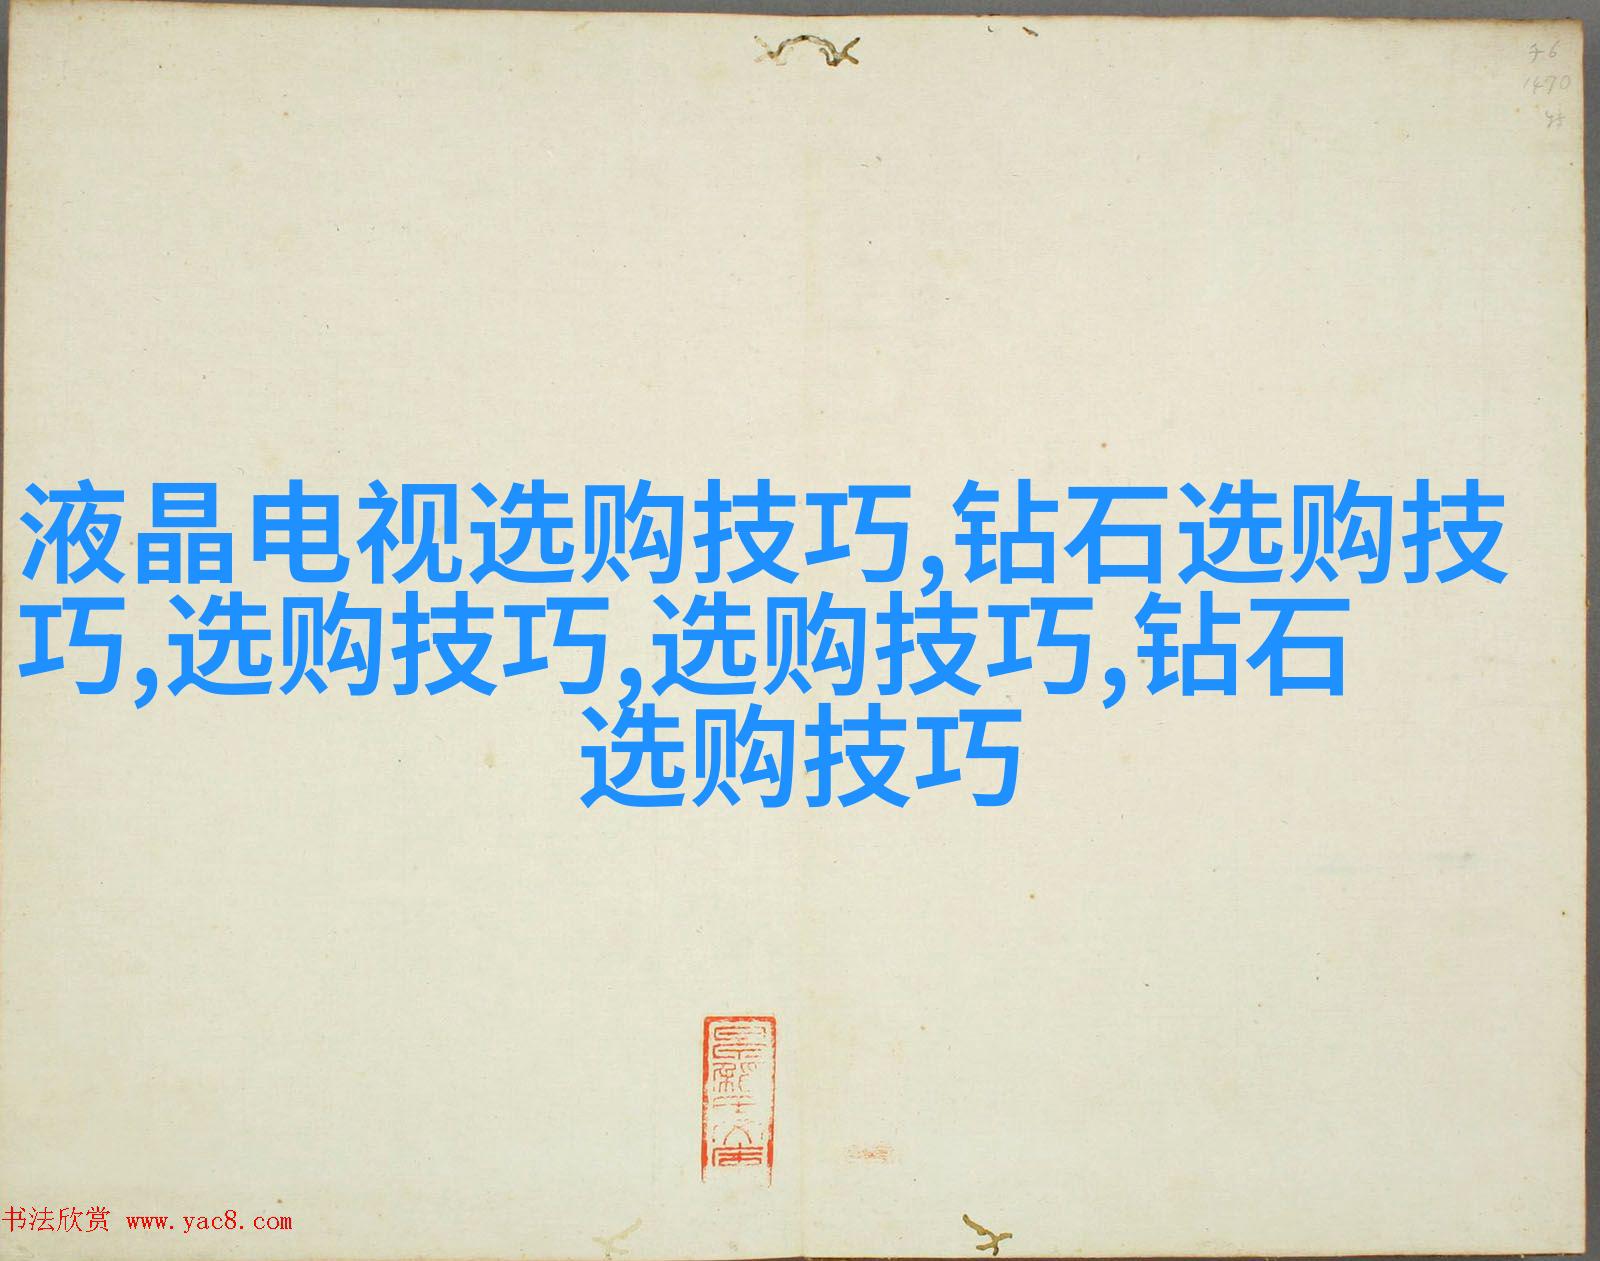 液晶电视选购技巧,钻石选购技
巧,选购技巧,选购技巧,钻石
选购技巧
1470
书法欣赏 www.yac8.com